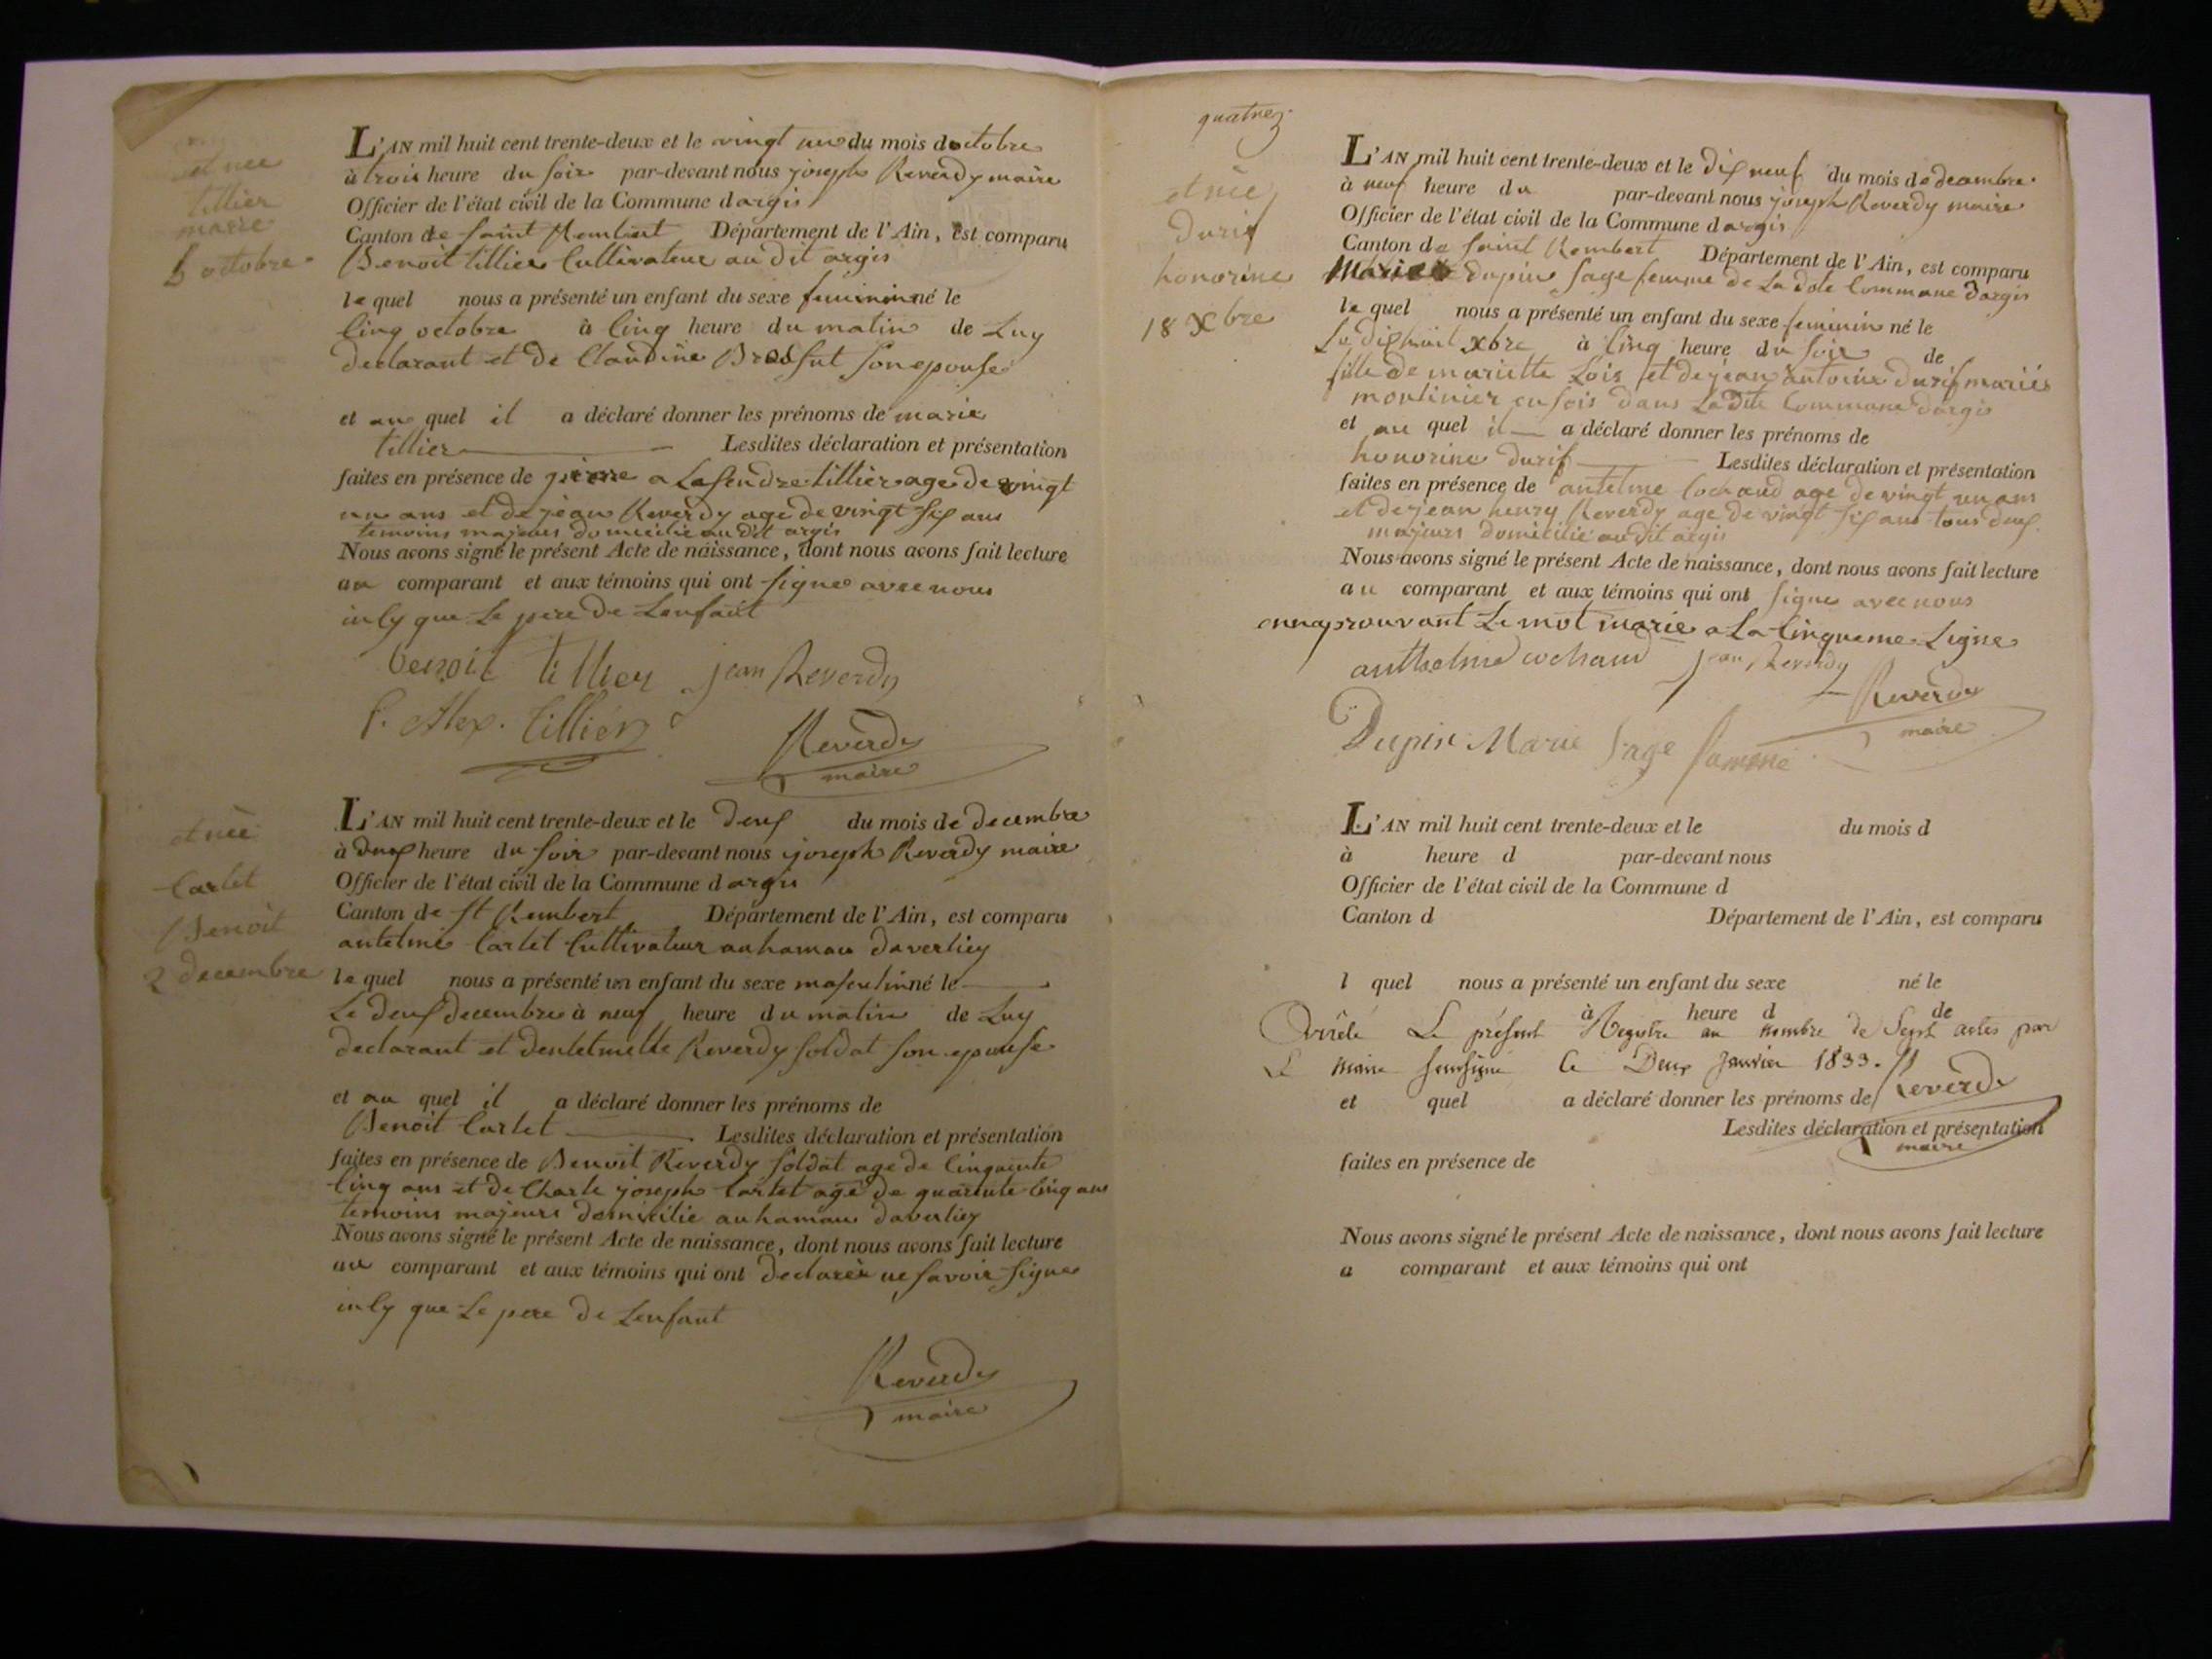 et née
tillier
marie
5 octobre
L'AN mil huit cent trente-deux et le vingt un du mois doctobre
à trois heure du soir par-devant nous joseph Reverdy maire
Officier de l'état civil de la Commune dargis
Canton de saint Rembert Département de l'Ain, est comparu
Benoit tillier Cultivateur au dit argis
le quel nous a présenté un enfant du sexe feminin né le
Cinq octobre à Cinq heure du matin de Luy
declarant et de Claudine son epouse
et au quel il a déclaré donner les prénoms de marie
tillier Lesdites déclaration et présentation
faites en présence de pierre a Lesendre tillier age de vingt
un ans et de jean Reverdy age de vingt six ans
temoins majeurs domicilie au dit argis
Nous avons signé le présent Acte de naissance, dont nous avons fait lecture
au comparant et aux témoins qui ont signe avec nous
insy que Le pere de Lenfant
benoit tillier jean Reverdy
P. Alex. Tillier
Reverdy
maire
et née
Cartet
Benoit
2 decembre
L'AN mil huit cent trente-deux et le deux du mois de decembre
à deux heure du soir par-devant nous joseph Reverdy maire
Officier de l'état civil de la Commune dargis
Canton de St Rembert Département de l'Ain, est comparu
antelme Cartet Cultivateur au hamau daverliey
le quel nous a présenté un enfant du sexe masculin né le
Le deux decembre à neuf heure du matin de Luy
declarant et dentelmette Reverdy soldat son epouse
et au quel il a déclaré donner les prénoms de
Benoit Cartet Lesdites déclaration et présentation
faites en présence de Benoit Reverdy soldat age de Cinquente
Cinq ans et de Charle joseph Cartet age de quarente Cinq ans
temoins majeurs domicilie au hamau daverliey
Nous avons signé le présent Acte de naissance, dont nous avons fait lecture
au comparant et aux témoins qui ont declarer ne savoir signe
insy que Le pere de Lenfant
Reverdy
maire
quatre
et née
durif
honorine
18 Xbre
L'AN mil huit cent trente-deux et le dix neuf du mois de decembre
à neuf heure du par-devant nous joseph Reverdy maire
Officier de l'état civil de la Commune dargis
Canton de saint Rembert Département de l'Ain, est comparu
Marie dupin sage femme de La dote Commune dargis
le quel nous a présenté un enfant du sexe feminin né le
Le dix huit xbre à Cinq heure du soir de
fille de mariette Lois et de jean antoine durif mariés
dans La dite Commune dargis
et au quel il a déclaré donner les prénoms de
honorine durif Lesdites déclaration et présentation
faites en présence de antelme Cochaud age de vingt un ans
et de jean henry Reverdy age de vingt six ans tous deux
majeurs domicilie au dit argis
Nous avons signé le présent Acte de naissance, dont nous avons fait lecture
au comparant et aux témoins qui ont signe avec nous
enaprouvant Le mot marie a La Cinqueme Ligne
anthelme cochaud jean Reverdy
Reverdy
maire
Dupin Marie Sage famme
L'AN mil huit cent trente-deux et le du mois d
à heure d par-devant nous
Officier de l'état civil de la Commune d
Canton d Département de l'Ain, est comparu
l quel nous a présenté un enfant du sexe né le
à heure d de
Arrêté Le présent Registre au nombre de Sept actes par
Le maire soussigné le Deux Janvier 1833. Reverdy
et quel a déclaré donner les prénoms de
Lesdites déclaration et présentation
maire
faites en présence de
Nous avons signé le présent Acte de naissance, dont nous avons fait lecture
a comparant et aux témoins qui ont